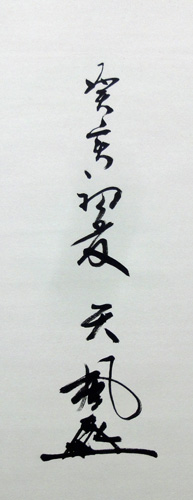 癸亥初夏 天楓